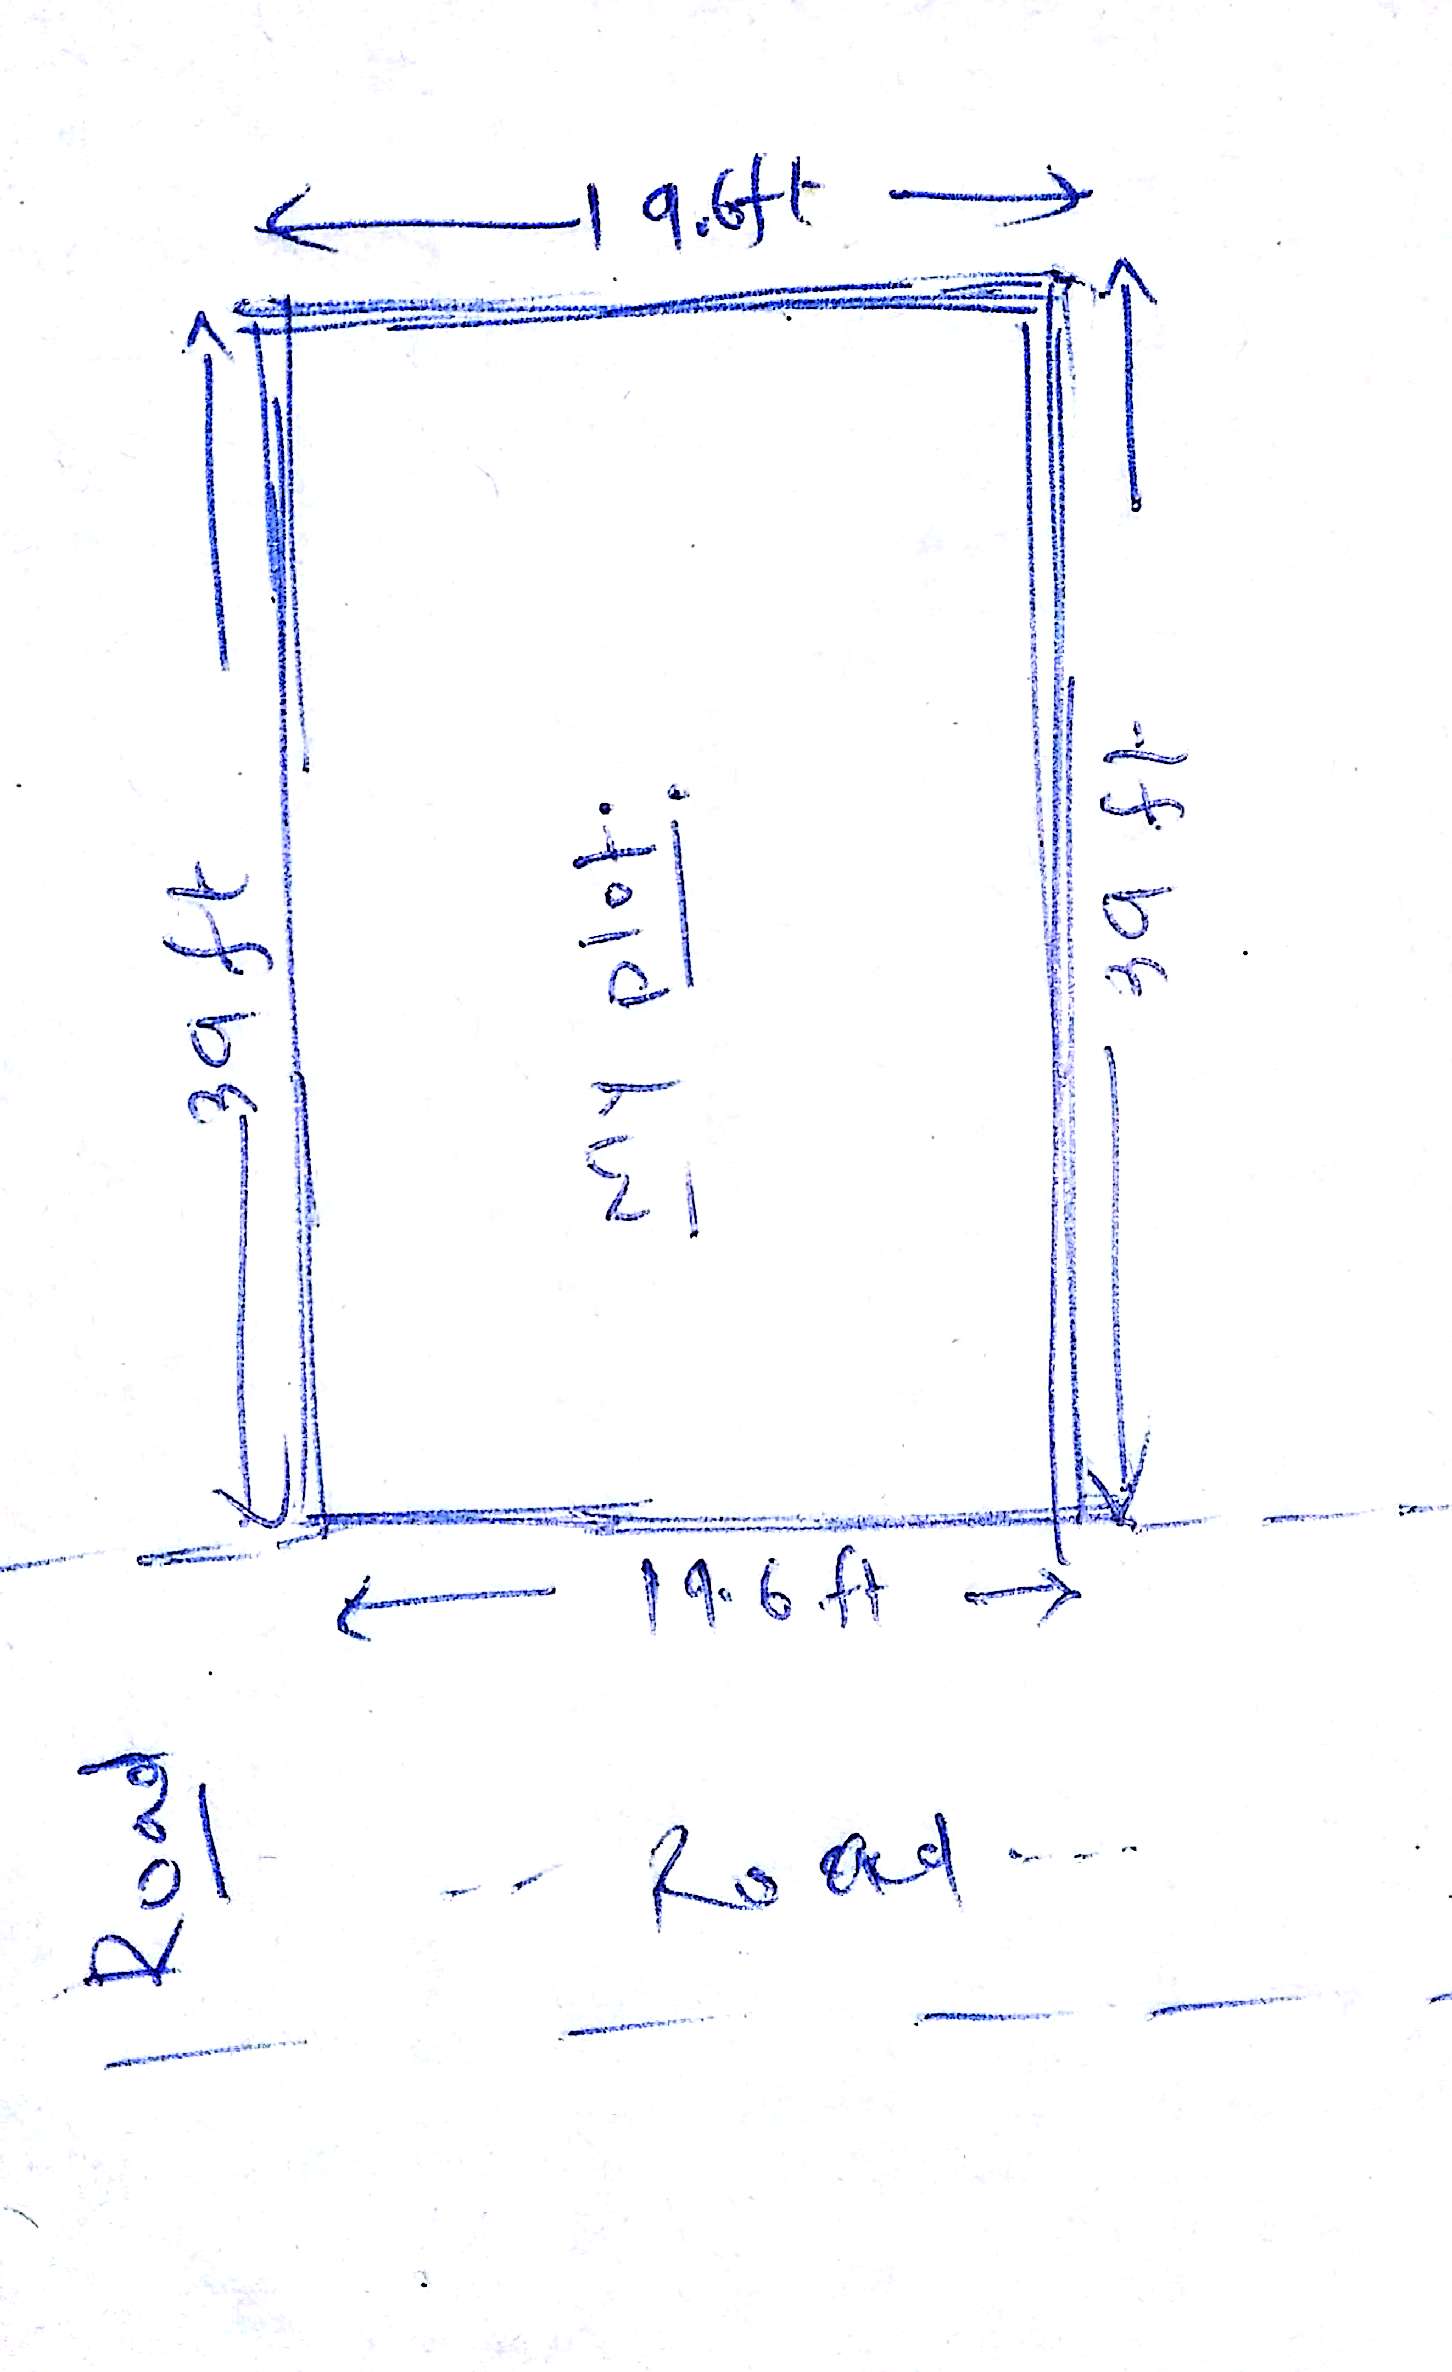 19.6ft
39 ft
My plot.
39 ft
19.6 ft
Road
-- Road ----